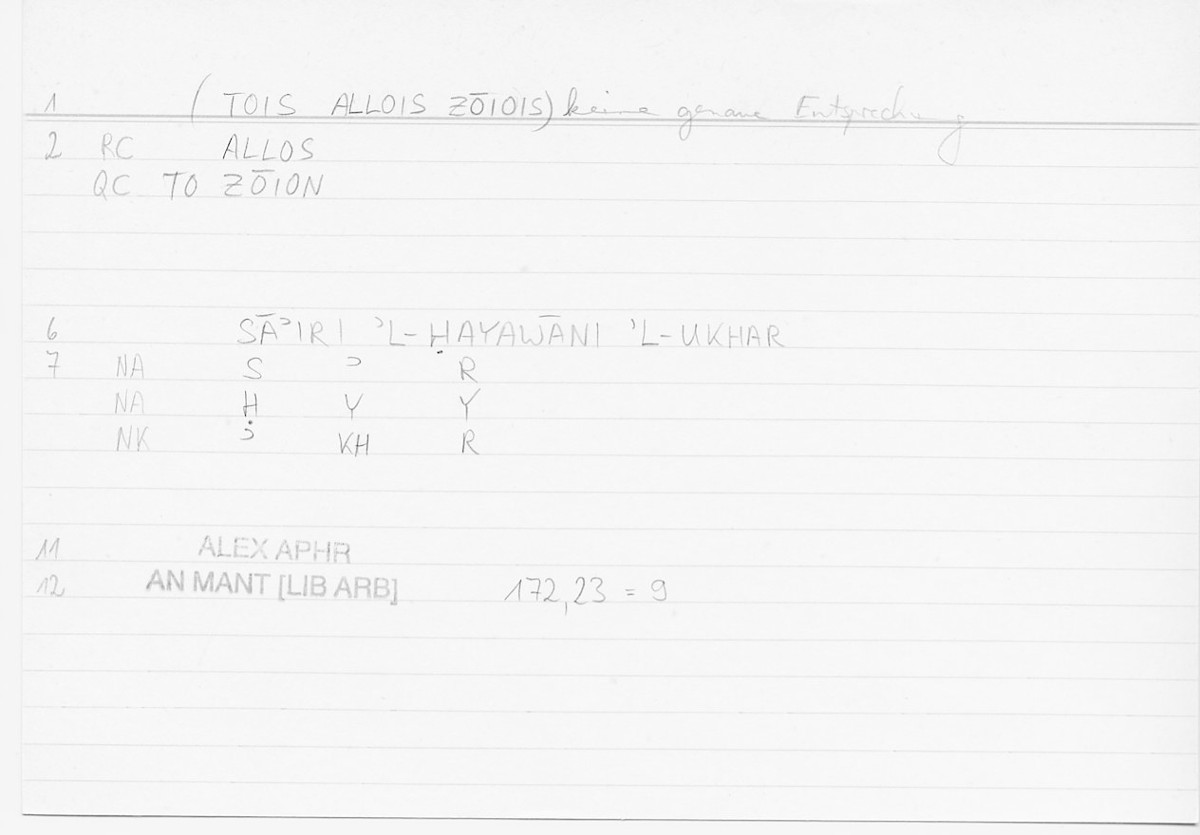 1 (TOIS ALLOIS ZŌIOIS) keine genaue Entsprechung
2 RC ALLOS
QC TO ZŌION
6 SĀʾIRI ʾL-ḤAYAWĀNI ʾL-UKHAR
7 NA S ʾ R
NA Ḥ Y Y
NK ʾ KH R
11 ALEX APHR
12 AN MANT [LIB ARB] 172,23 = 9